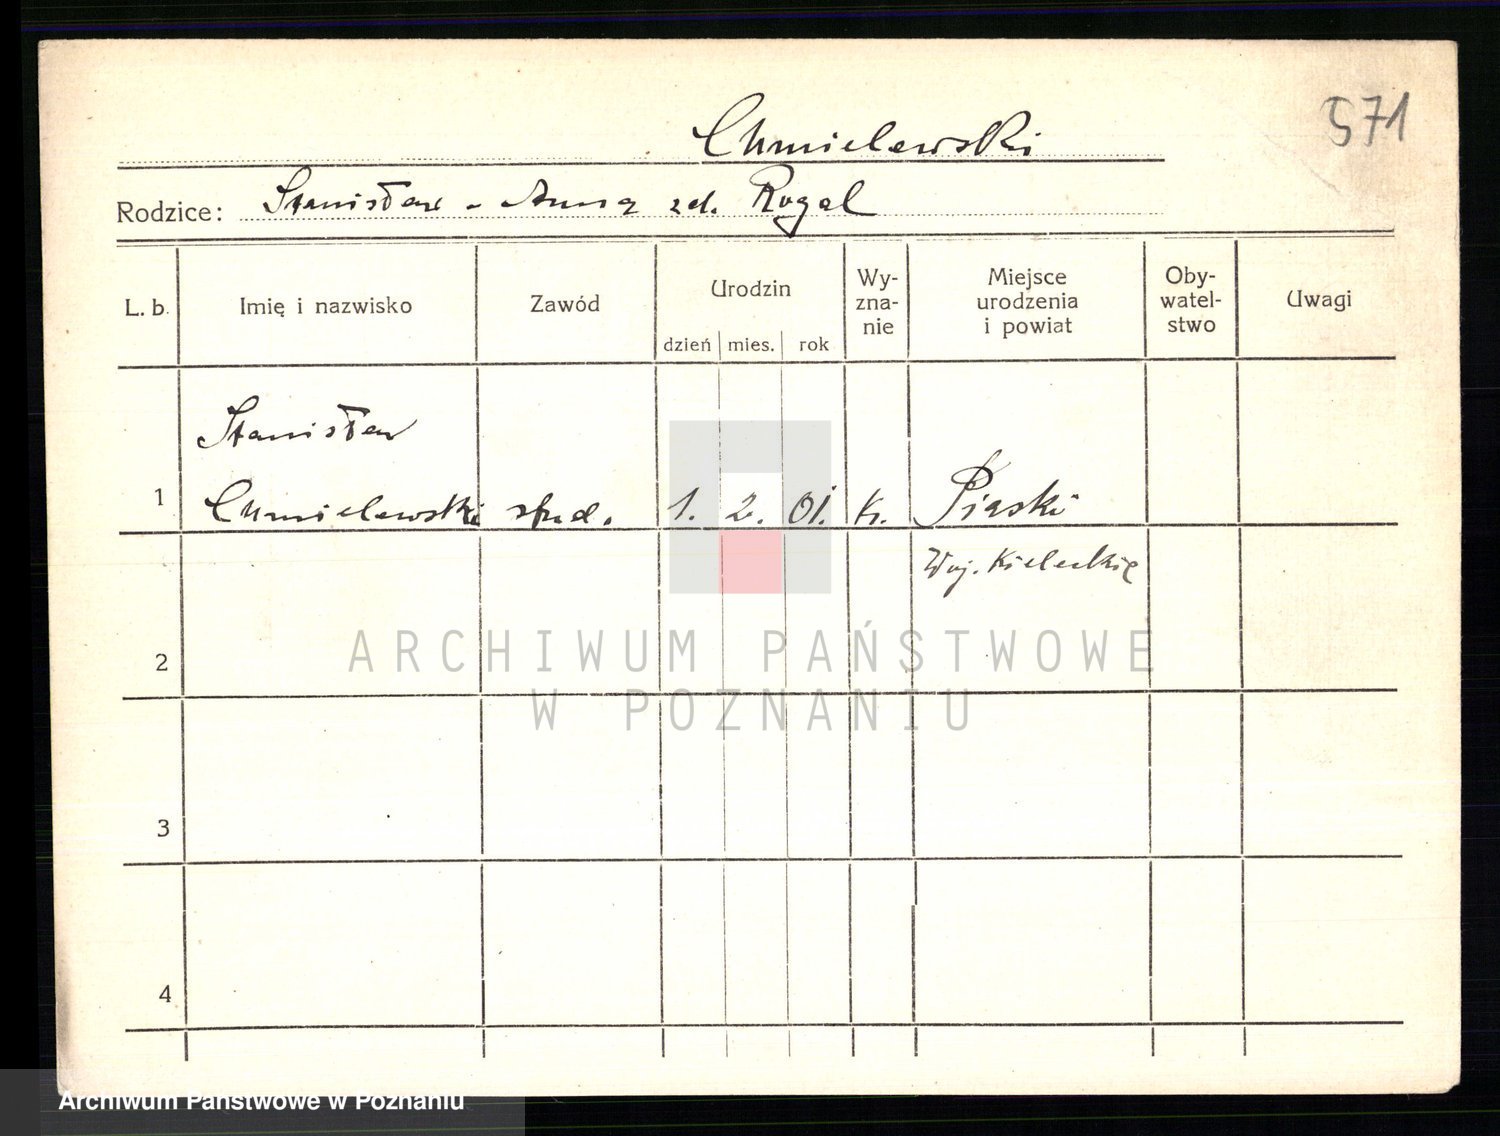 571
Chmielewski
Rodzice: Stanisław - Anna zd. Rogal
L. b. Imię i nazwisko Zawód Urodzin dzień mies. rok Wy-zna-nie Miejsce urodzenia i powiat Oby-watel-stwo Uwagi
Stanisław
1 Chmielewski stud. 1. 2. 01. k. Piaski
Woj. Kieleckie
2
ARCHIWUM PAŃSTWOWE
W POZNANIU
3
4
Archiwum Państwowe w Poznaniu